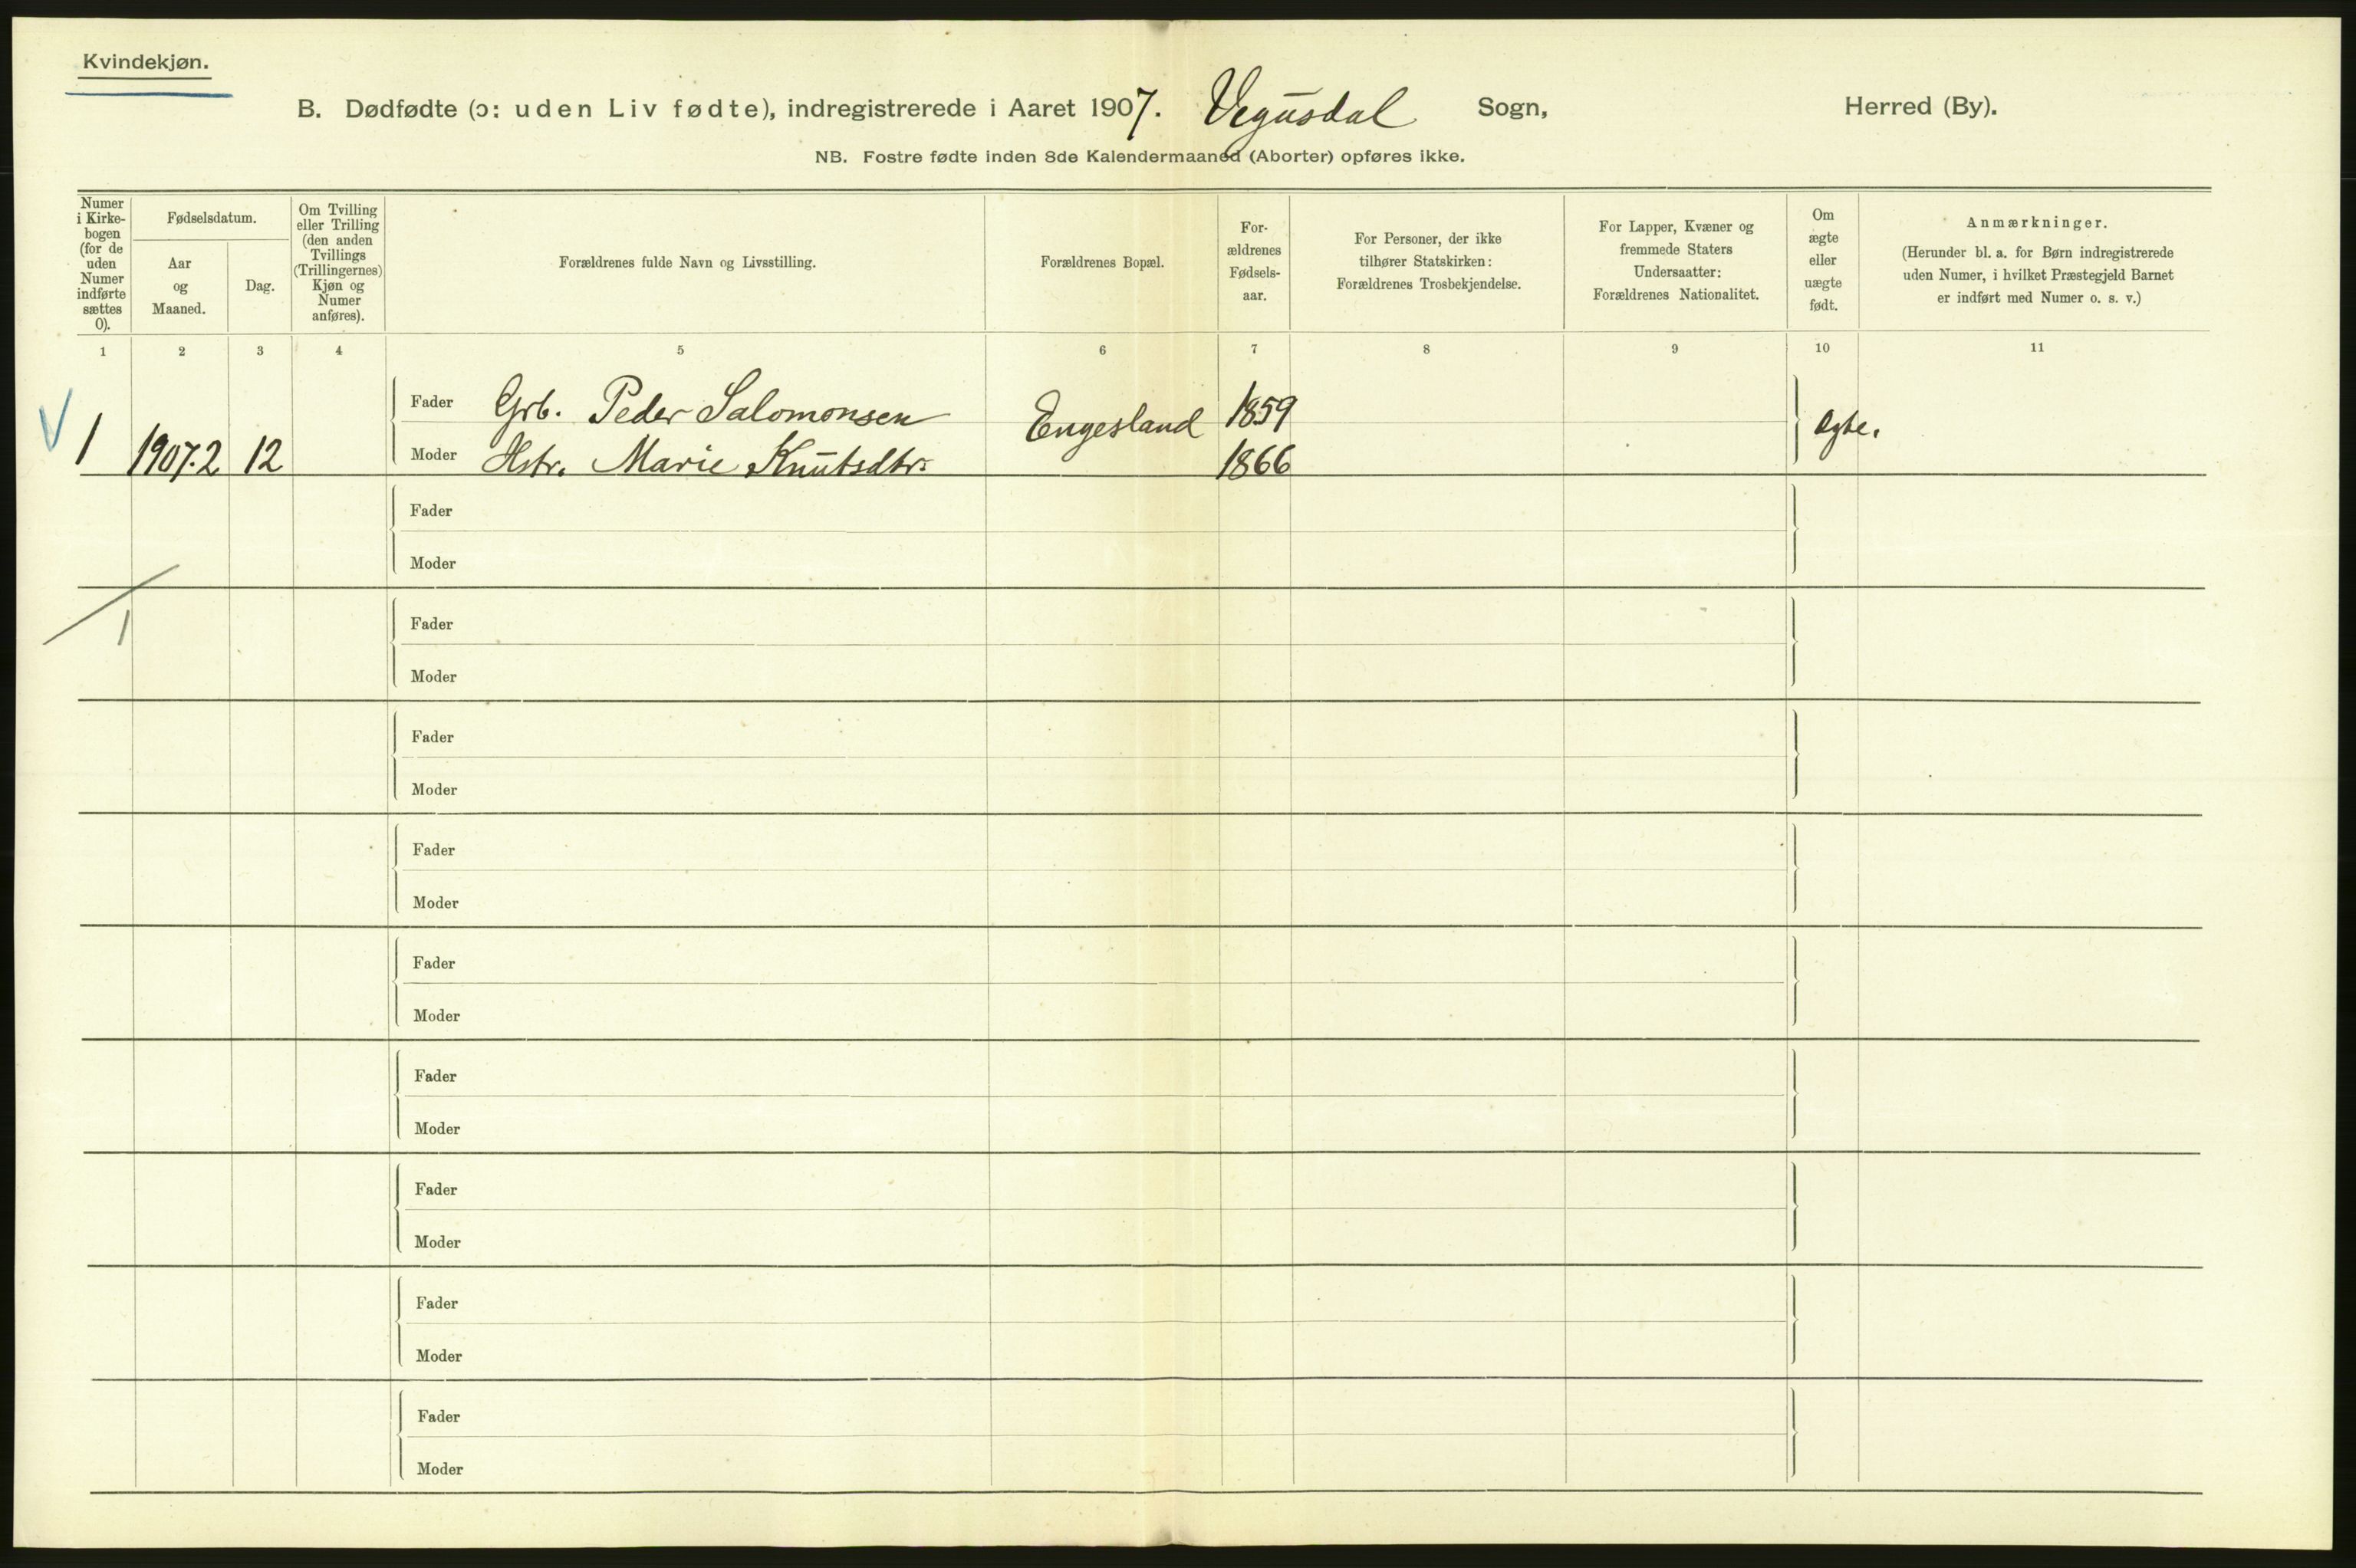 Kvindekjøn.
B. Dødfødte (ɔ: uden Liv fødte), indregistrerede i Aaret 1907. Vegusdal Sogn, Herred (By).
NB. Fostre fødte inden 8de Kalendermaaned (Aborter) opføres ikke.
Numer i Kirke- bogen (for de uden Numer indførte sættes 0).
Fødselsdatum.
Aar og Maaned.
Dag.
Om Tvilling eller Trilling (den anden Tvillings (Trillingernes) Kjøn og Numer anføres).
Forældrenes fulde Navn og Livsstilling.
Forældrenes Bopæl.
For- ældrenes Fødsels- aar.
For Personer, der ikke tilhører Statskirken: Forældrenes Trosbekjendelse.
For Lapper, Kvæner og fremmede Staters Undersaatter: Forældrenes Nationalitet.
Om ægte eller uægte født.
Anmærkninger.
(Herunder bl. a. for Børn indregistrerede uden Numer, i hvilket Præstegjeld Barnet er indført med Numer o. s. v.)
1 2 3 4 5 6 7 8 9 10 11
Fader Grb. Peder Salomonsen Engesland 1859 Ægte.
1 1907.2 12 Moder Hstr. Marie Knutsdtr. 1866
Fader
Moder
1
Fader
Moder
Fader
Moder
Fader
Moder
Fader
Moder
Fader
Moder
Fader
Moder
Fader
Moder
Fader
Moder